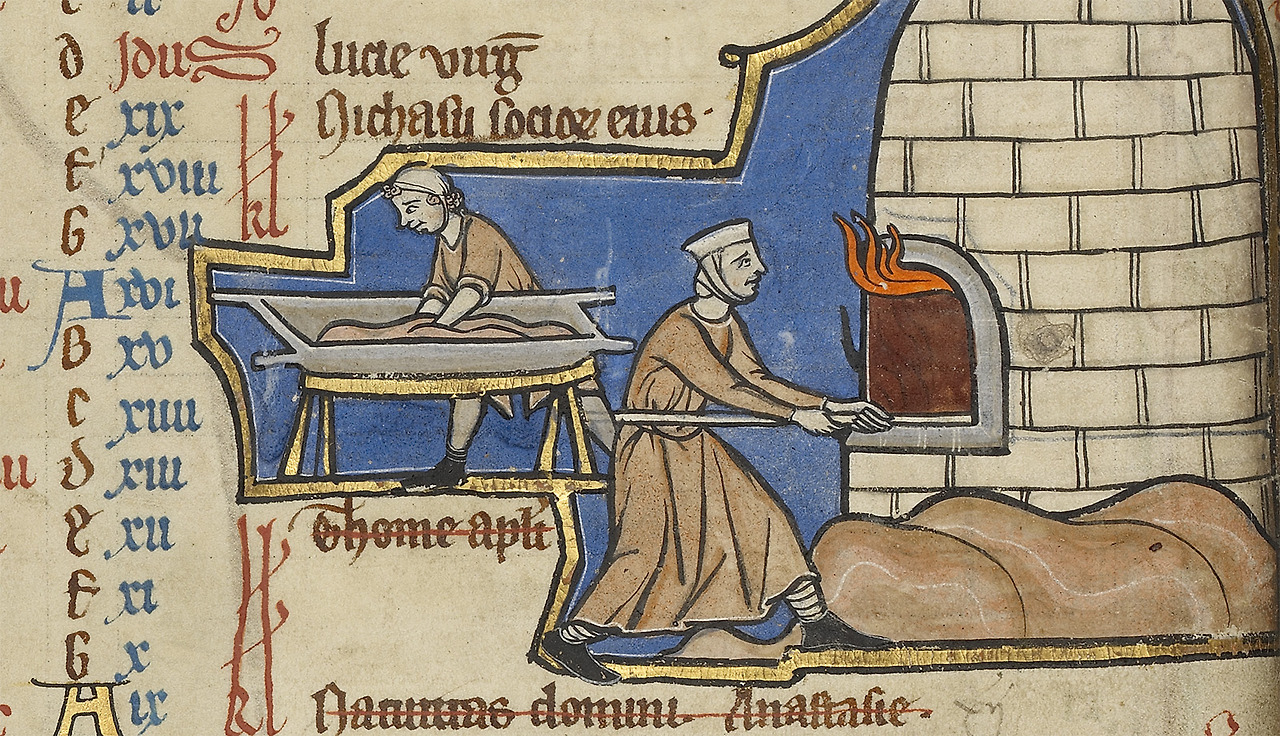 d Idus lucie virg̅
e xix Nichasii socior eius ·
f xviii
G xvii kl
A xvi
B xv
c xiiii
d xiii
e xii Thome apli
f xi
G x
A ix kl Natiuitas domini. Anastasie.